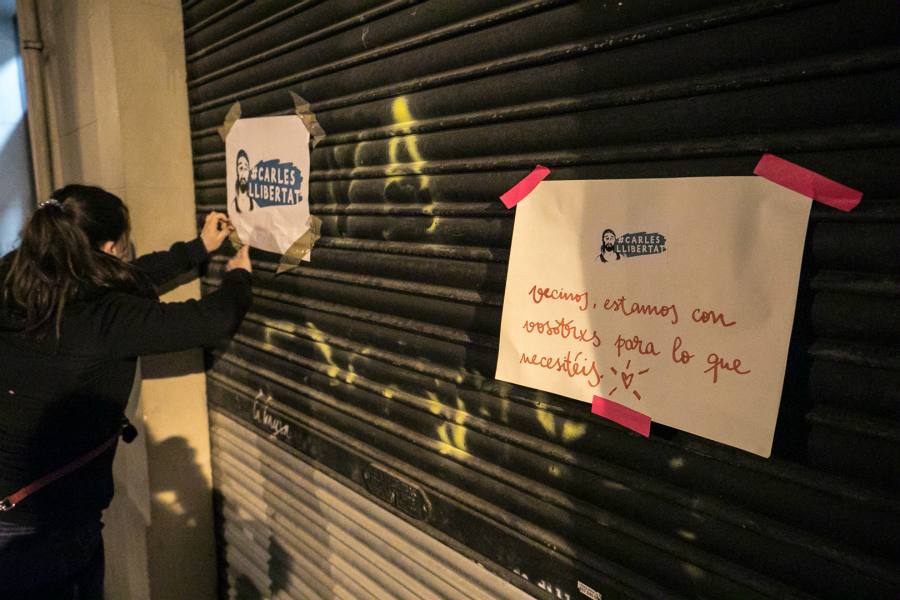 #CARLES
LLIBERTAT
#CARLES
LLIBERTAT
vecinos, estamos con
vosotrxs para lo que
necesitéis.